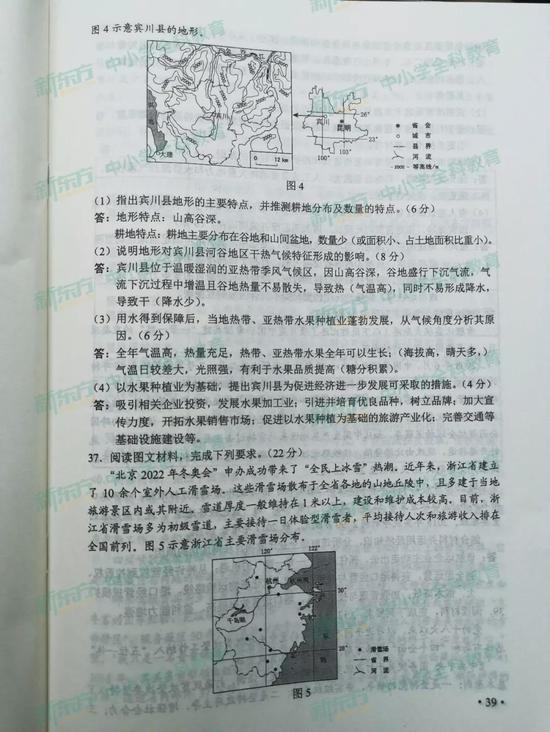 图4示意宾川县的地形。
宾川
大理
0 12 km
宾川
昆明
26°
23°
100°
103°
省会
城市
县界
河流
等高线/m
图4
(1)指出宾川县地形的主要特点，并推测耕地分布及数量的特点。(6分)
答：地形特点：山高谷深。
耕地特点：耕地主要分布在谷地和山间盆地，数量少(或面积小、占土地面积比重小)。
(2)说明地形对宾川县河谷地区干热气候特征形成的影响。(8分)
答：宾川县位于温暖湿润的亚热带季风气候区，因山高谷深，谷地盛行下沉气流，气
流下沉过程中增温且谷地热量不易散失，导致热(气温高)，同时不易形成降水，
导致干(降水少)。
(3)用水得到保障后，当地热带、亚热带水果种植业蓬勃发展，从气候角度分析其原
因。(6分)
答：全年气温高，热量充足，热带、亚热带水果全年可以生长；(海拔高，晴天多，)
气温日较差大，光照强，有利于水果品质提高(糖分积累)。
(4)以水果种植业为基础，提出宾川县为促进经济进一步发展可采取的措施。(4分)
答：吸引相关企业投资，发展水果加工业；引进并培育优良品种，树立品牌；加大宣
传力度，开拓水果销售市场；促进以水果种植为基础的旅游产业化；完善交通等
基础设施建设等。
37.阅读图文材料，完成下列要求。(22分)
“北京2022年冬奥会”申办成功带来了“全民上冰雪”热潮。近年来，浙江省建立
了10余个室外人工滑雪场。这些滑雪场散布于全省各地的山地丘陵中，且多建于当地
旅游景区内或其附近。雪道厚度一般维持在1米以上，建设和维护成本较高。目前，浙
江省滑雪场多为初级雪道，主要接待一日体验型滑雪者，平均接待人次和旅游收入排在
全国前列。图5示意浙江省主要滑雪场分布。
120° 122°
杭州
杭州湾
30°
千岛湖
东
28°
海
滑雪场
省界
河流
图5
·39·
新东方 中小学全科教育